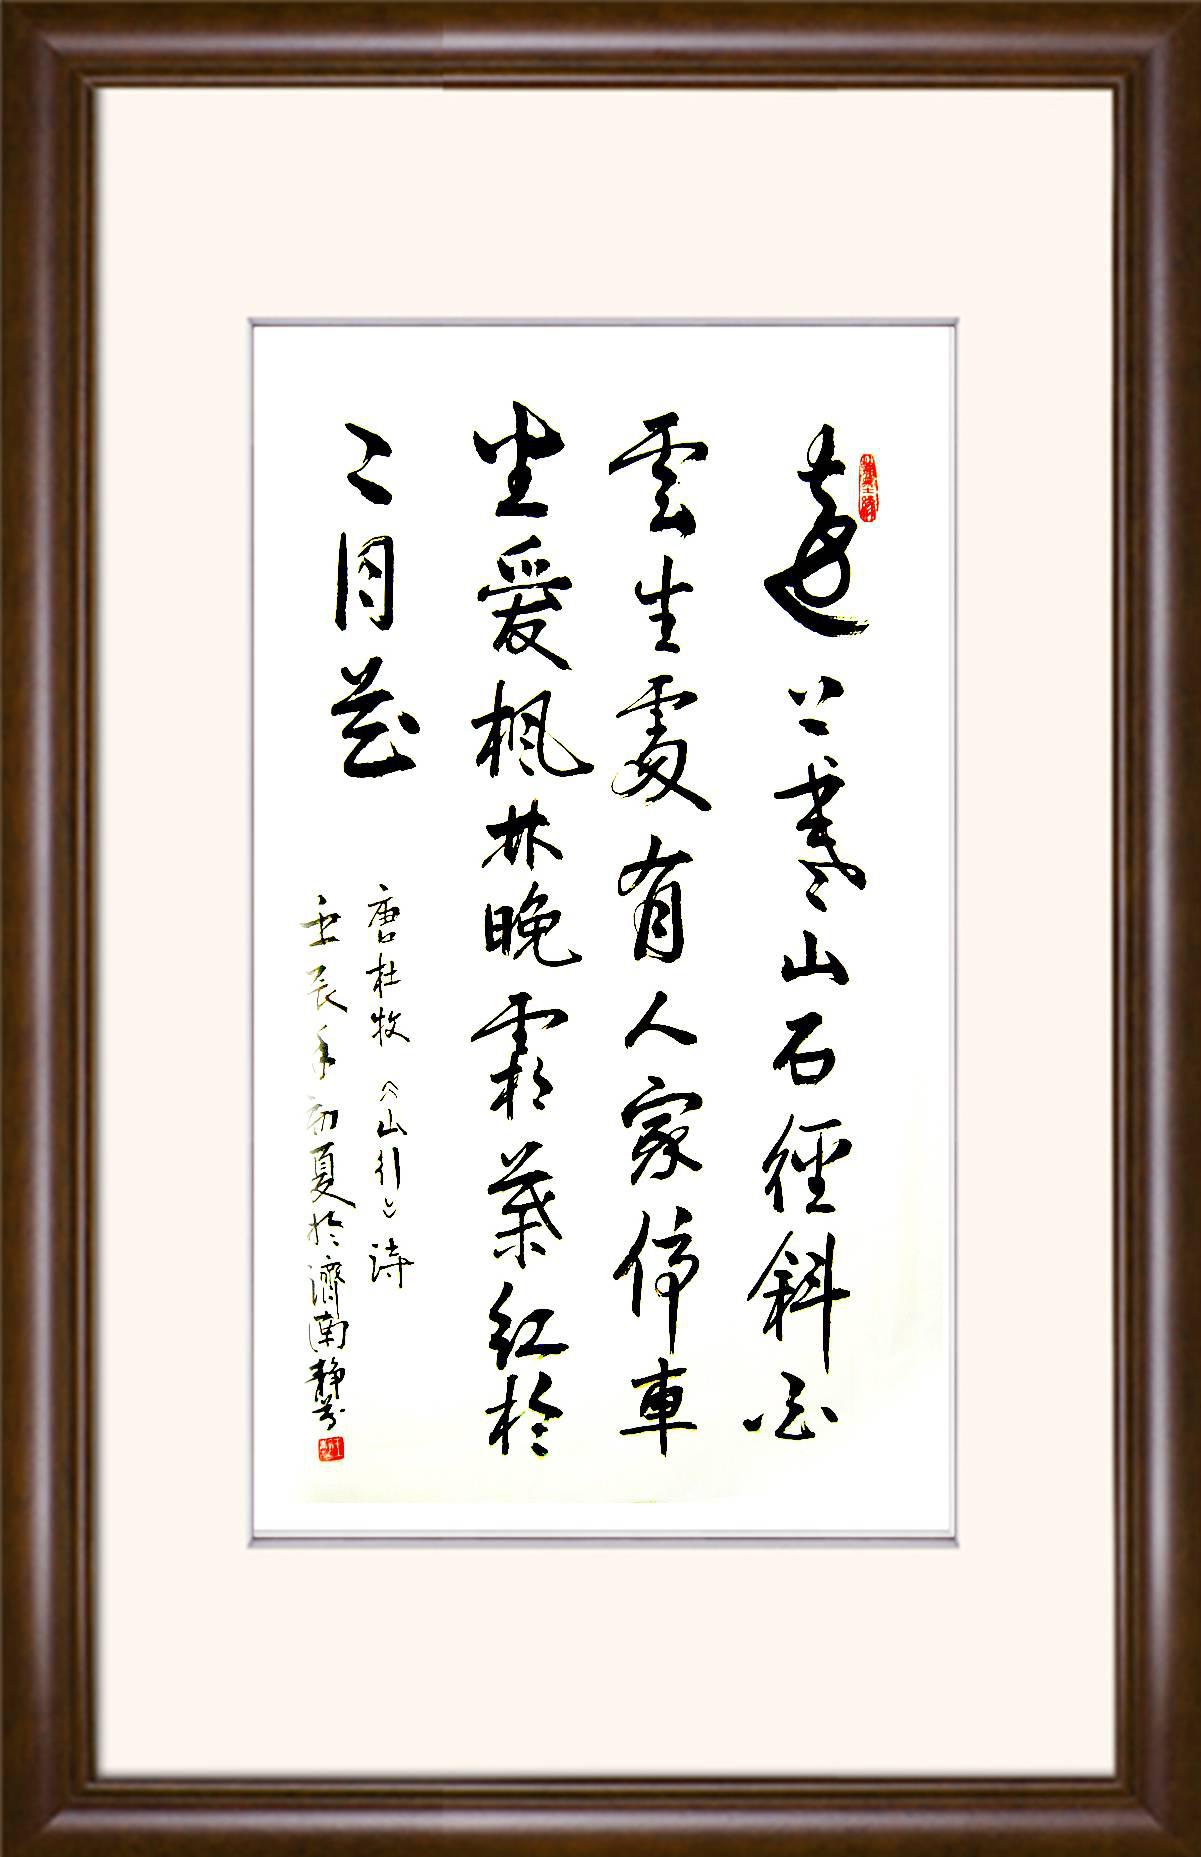 遠上寒山石徑斜白
雲生處有人家停車
坐愛楓林晚霜葉紅於
二月花
唐杜牧《山行》詩
壬辰年初夏於濟南靜芬